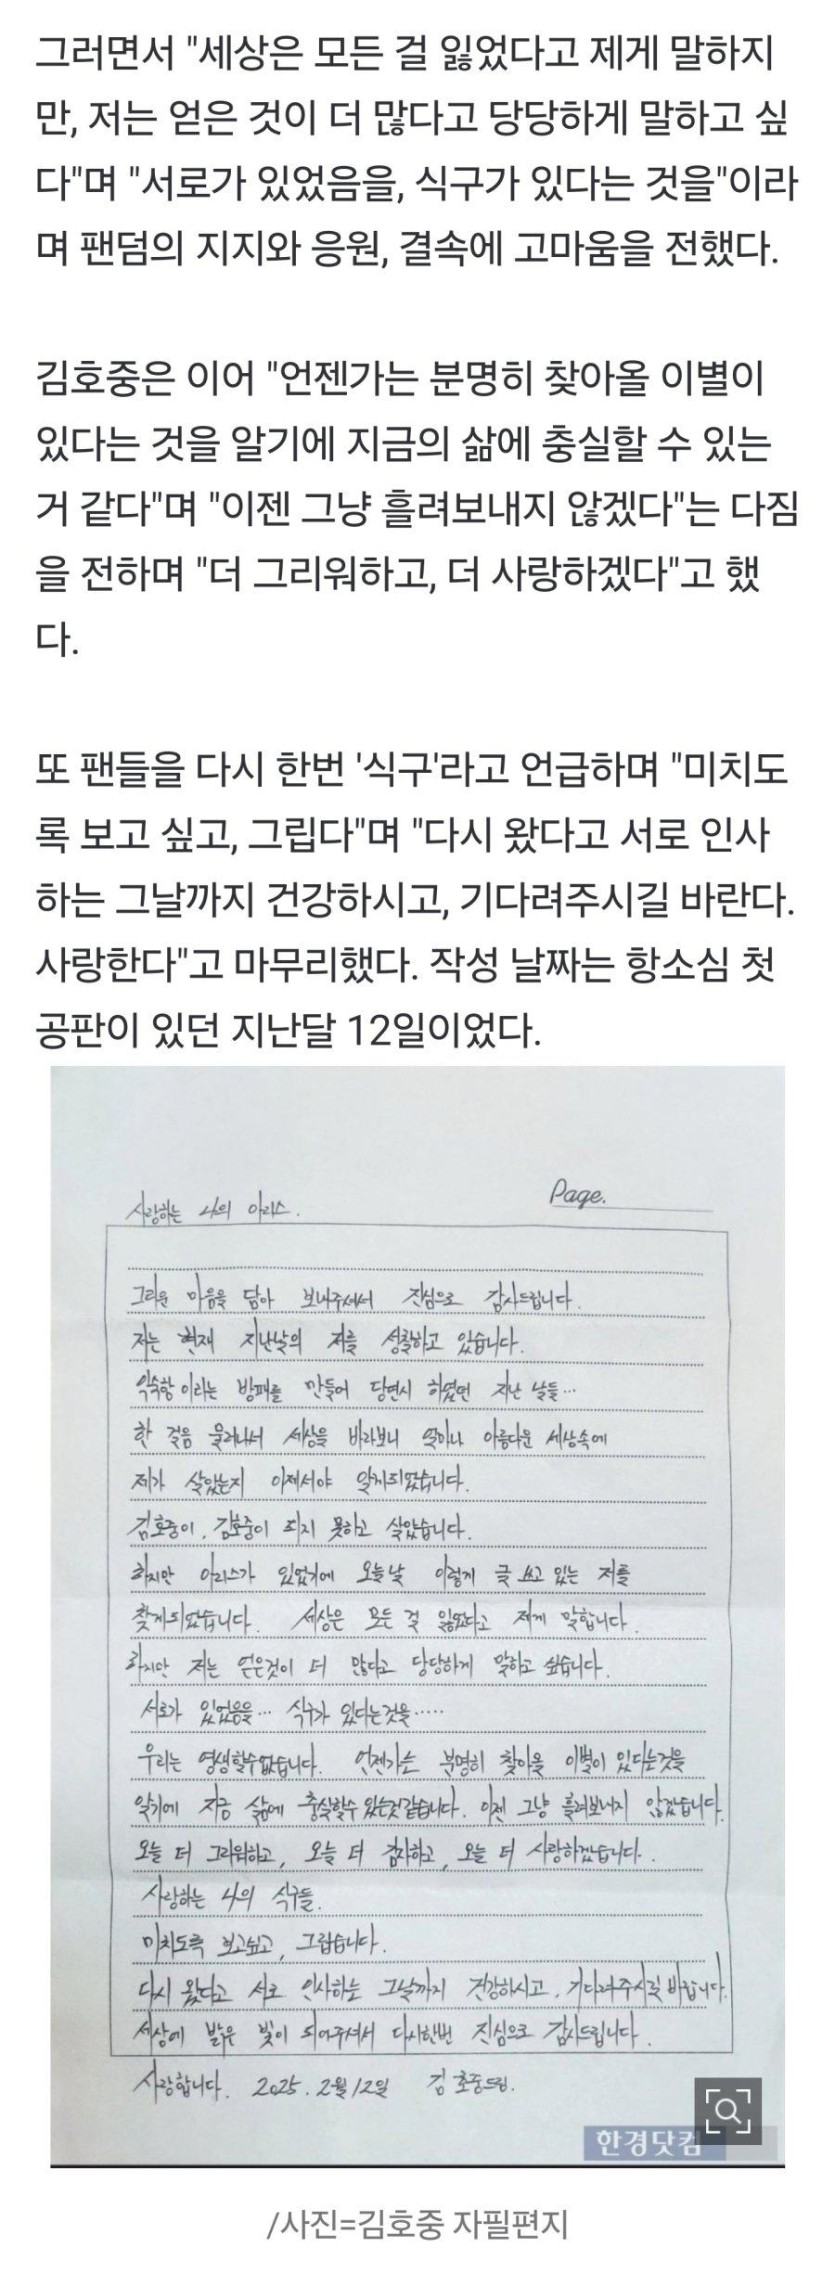 그러면서 "세상은 모든 걸 잃었다고 제게 말하지
만, 저는 얻은 것이 더 많다고 당당하게 말하고 싶
다"며 "서로가 있었음을, 식구가 있다는 것을"이라
며 팬덤의 지지와 응원, 결속에 고마움을 전했다.
김호중은 이어 "언젠가는 분명히 찾아올 이별이
있다는 것을 알기에 지금의 삶에 충실할 수 있는
거 같다"며 "이젠 그냥 흘려보내지 않겠다"는 다짐
을 전하며 "더 그리워하고, 더 사랑하겠다"고 했
다.
또 팬들을 다시 한번 '식구'라고 언급하며 "미치도
록 보고 싶고, 그립다"며 "다시 왔다고 서로 인사
하는 그날까지 건강하시고, 기다려주시길 바란다.
사랑한다"고 마무리했다. 작성 날짜는 항소심 첫
공판이 있던 지난달 12일이었다.
사랑하는 나의 아리스.
Page.
그리운 마음을 담아 보내주셔서 진심으로 감사드립니다.
저는 현재 지난날의 저를 성찰하고 있습니다.
익숙함이라는 방패를 만들어 당연시 하였던 지난 날들...
한 걸음 물러나서 세상을 바라보니 얼마나 아름다운 세상속에
제가 살았는지 이제서야 알게되었습니다.
김호중이, 김호중이 되지 못하고 살았습니다.
하지만 아리스가 있었기에 오늘날 이렇게 글 쓰고 있는 저를
찾게되었습니다. 세상은 모든 걸 잃었다고 제게 말합니다.
하지만 저는 얻은것이 더 많다고 당당하게 말하고 싶습니다.
서로가 있었음을... 식구가 있다는것을.....
우리는 영생할수없습니다. 언젠가는 분명히 찾아올 이별이 있다는것을
알기에 지금 삶에 충실할수 있는것같습니다. 이젠 그냥 흘려보내지 않겠습니다.
오늘 더 그리워하고, 오늘 더 감사하고, 오늘 더 사랑하겠습니다.
사랑하는 나의 식구들.
미치도록 보고싶고, 그립습니다.
다시 왔다고 서로 인사하는 그날까지 건강하시고, 기다려주시길 바랍니다.
세상에 밝은 빛이 되어주셔서 다시한번 진심으로 감사드립니다.
사랑합니다. 2025. 2월 12일 김호중드림.
한경닷컴
/사진=김호중 자필편지